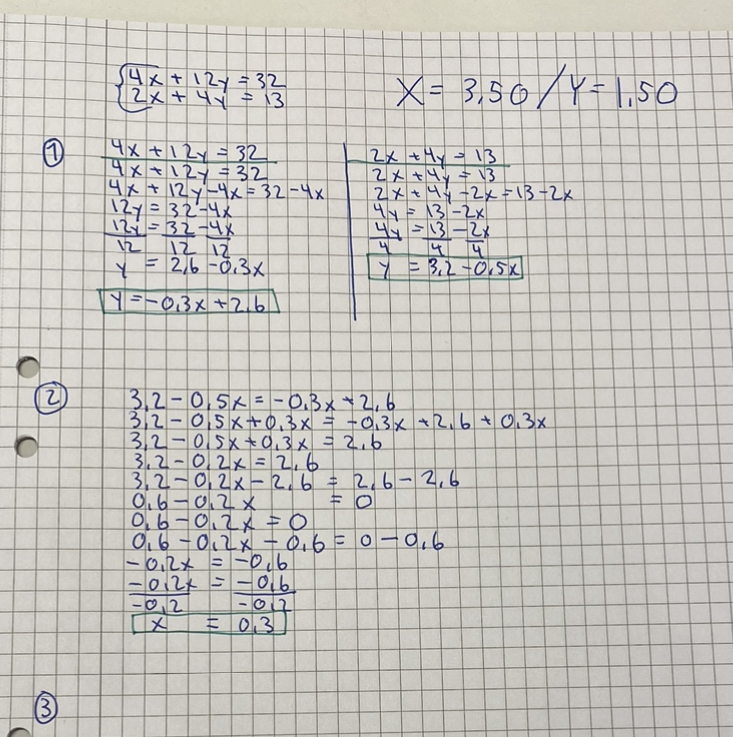 4x + 12y = 32
2x + 4y = 13
X = 3,50 / Y = 1,50
①
4x + 12y = 32
4x + 12y = 32
4x + 12y - 4x = 32 - 4x
12y = 32 - 4x
12y = 32 - 4x
12 12 12
y = 2,6 - 0,3x
y = -0,3x + 2,6
2x + 4y = 13
2x + 4y = 13
2x + 4y - 2x = 13 - 2x
4y = 13 - 2x
4y = 13 - 2x
4 4 4
y = 3,2 - 0,5x
②
3,2 - 0,5x = -0,3x + 2,6
3,2 - 0,5x + 0,3x = -0,3x + 2,6 + 0,3x
3,2 - 0,5x + 0,3x = 2,6
3,2 - 0,2x = 2,6
3,2 - 0,2x - 2,6 = 2,6 - 2,6
0,6 - 0,2x = 0
0,6 - 0,2x = 0
0,6 - 0,2x - 0,6 = 0 - 0,6
-0,2x = -0,6
-0,2x = -0,6
-0,2 -0,2
x = 0,3
③